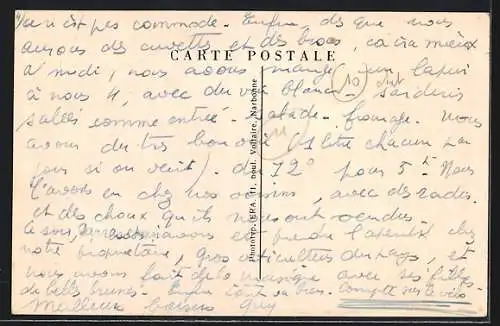 n'est pas commode. Enfin, dès que nous
aurons des cuvettes et des brocs, ça ira mieux
CARTE POSTALE
à midi, nous avons mangé un lapin
à nous 4, avec du vin blanc - sardines
salées comme entrée - salade - fromage. Nous
avons du très bon vin (1 litre chacun par
jour si on veut). du 12° pour 5 Nous
l'avons eu chez nos voisins, avec des radis
et des choux qu'ils nous ont vendus.
le soir, nous avons été prendre l'apéritif chez
notre propriétaire, gros viticulteur du pays, et
nous avons fait de la musique avec ses filles
de belles brunes. Enfin tout va bien. Compte sur le vin
Meilleurs baisers Guy
Phototyp. ERA, 11, boul. Voltaire, Narbonne